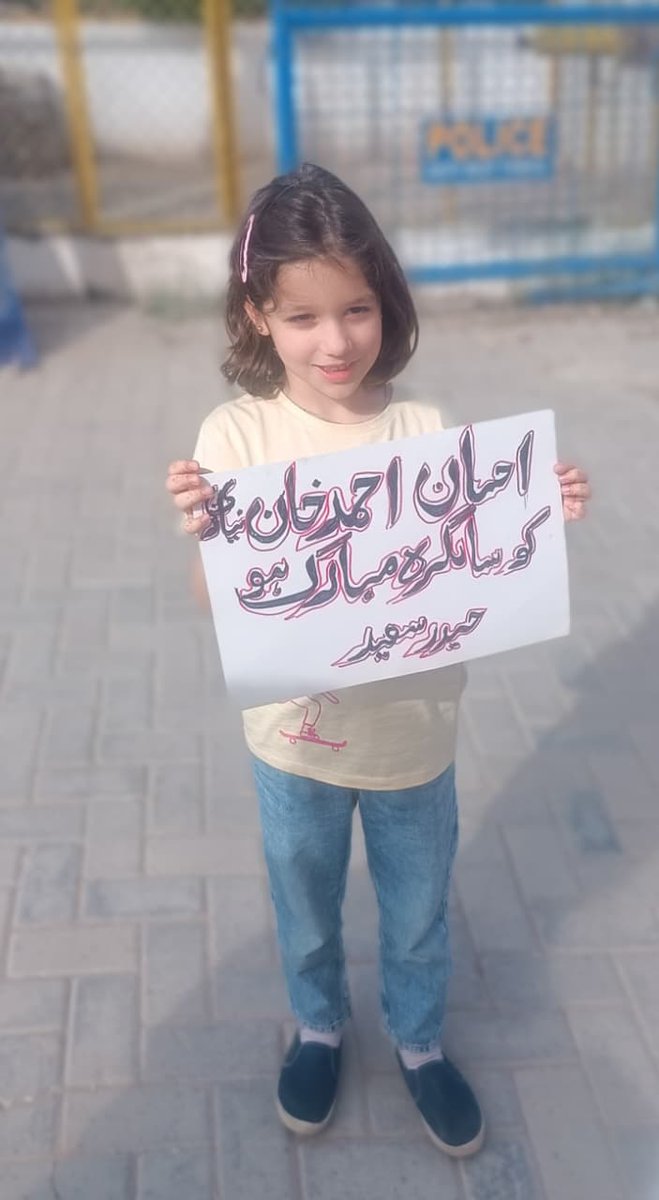 POLICE
احسان احمد خان نیازی
کو سالگرہ مبارک ہو
حیدر سعید